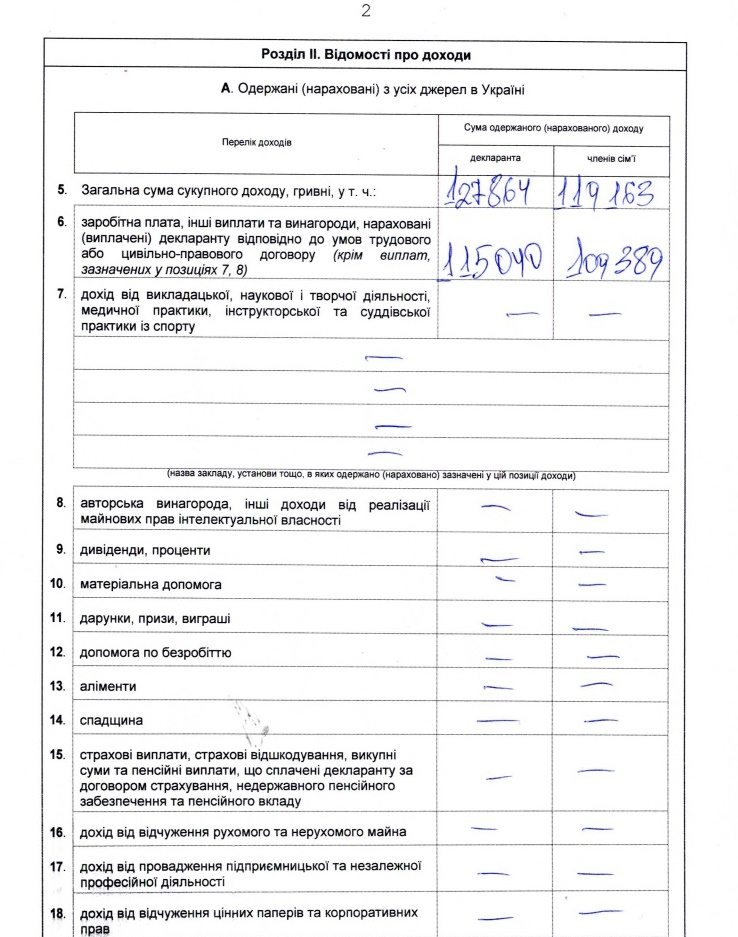 2
Розділ II. Відомості про доходи
А. Одержані (нараховані) з усіх джерел в Україні
Перелік доходів
Сума одержаного (нарахованого) доходу
декларанта
членів сім’ї
5. Загальна сума сукупного доходу, гривні, у т. ч.: 127864 119163
6. заробітна плата, інші виплати та винагороди, нараховані
(виплачені) декларанту відповідно до умов трудового
або цивільно-правового договору (крім виплат,
зазначених у позиціях 7, 8) 115040 109389
7. дохід від викладацької, наукової і творчої діяльності,
медичної практики, інструкторської та суддівської — —
практики із спорту
—
—
—
—
(назва закладу, установи тощо, в яких одержано (нараховано) зазначені у цій позиції доходи)
8. авторська винагорода, інші доходи від реалізації — —
майнових прав інтелектуальної власності
9. дивіденди, проценти — —
10. матеріальна допомога — —
11. дарунки, призи, виграші — —
12. допомога по безробіттю — —
13. аліменти — —
14. спадщина — —
15. страхові виплати, страхові відшкодування, викупні
суми та пенсійні виплати, що сплачені декларанту за — —
договором страхування, недержавного пенсійного
забезпечення та пенсійного вкладу
16. дохід від відчуження рухомого та нерухомого майна — —
17. дохід від провадження підприємницької та незалежної — —
професійної діяльності
18. дохід від відчуження цінних паперів та корпоративних — —
прав